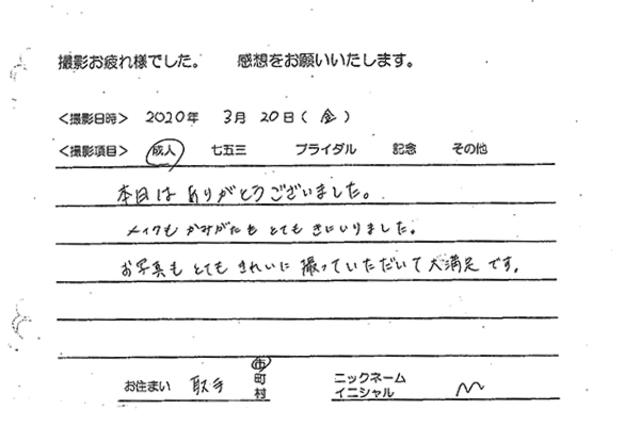 撮影お疲れ様でした。 感想をお願いいたします。
<撮影日時> 2020年 3月 20日(金)
<撮影項目> 成人 七五三 ブライダル 記念 その他
本日はありがとうございました。
メイクもかみがたもとてもきにいりました。
お写真もとてもきれいに撮っていただいて大満足です。
お住まい 取手 市町村 ニックネーム イニシャル M